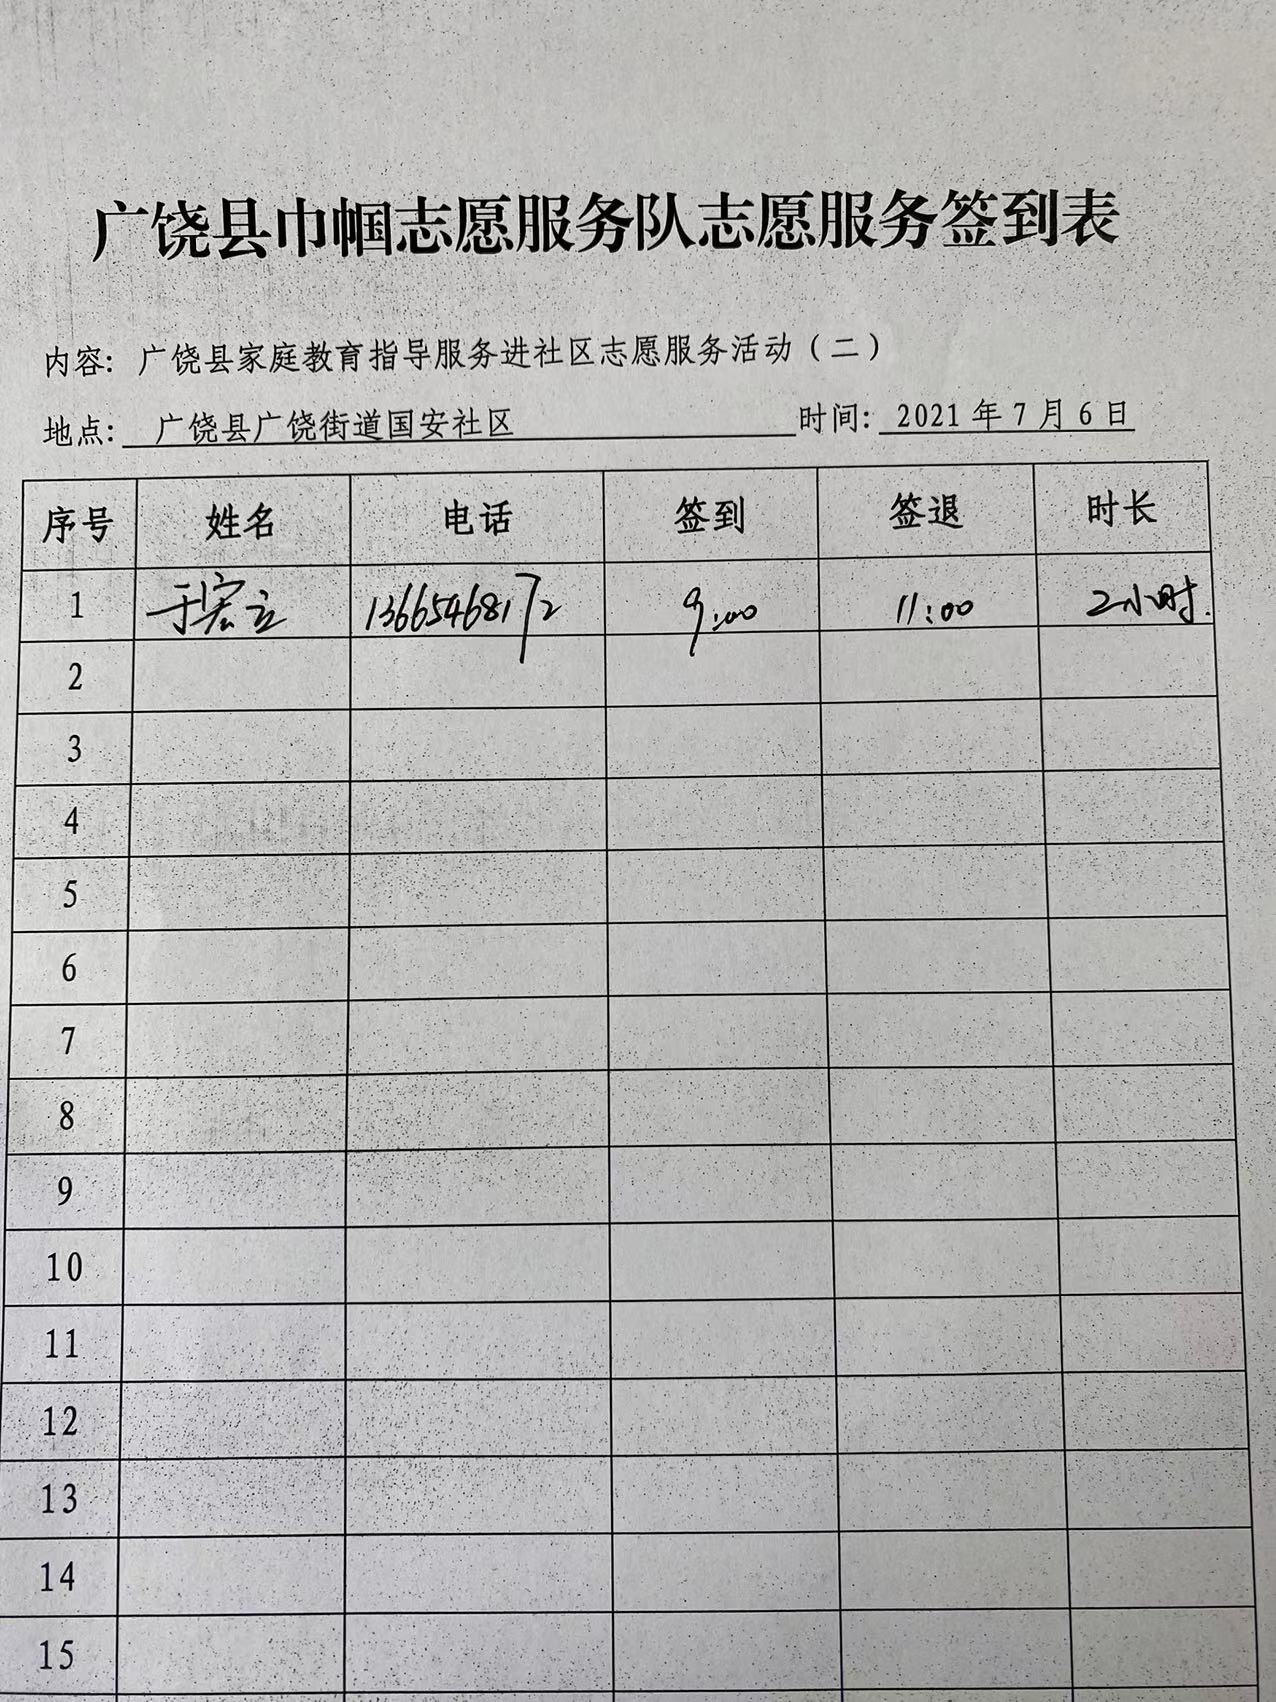 广饶县巾帼志愿服务队志愿服务签到表
内容: 广饶县家庭教育指导服务进社区志愿服务活动（二）
地点: 广饶县广饶街道国安社区 时间: 2021 年 7 月 6 日
序号 姓名 电话 签到 签退 时长
1 于宏立 13665468172 9:00 11:00 2小时.
2
3
4
5
6
7
8
9
10
11
12
13
14
15